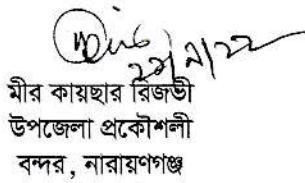 মীর কায়ছার রিজভী
উপজেলা প্রকৌশলী
বন্দর, নারায়ণগঞ্জ